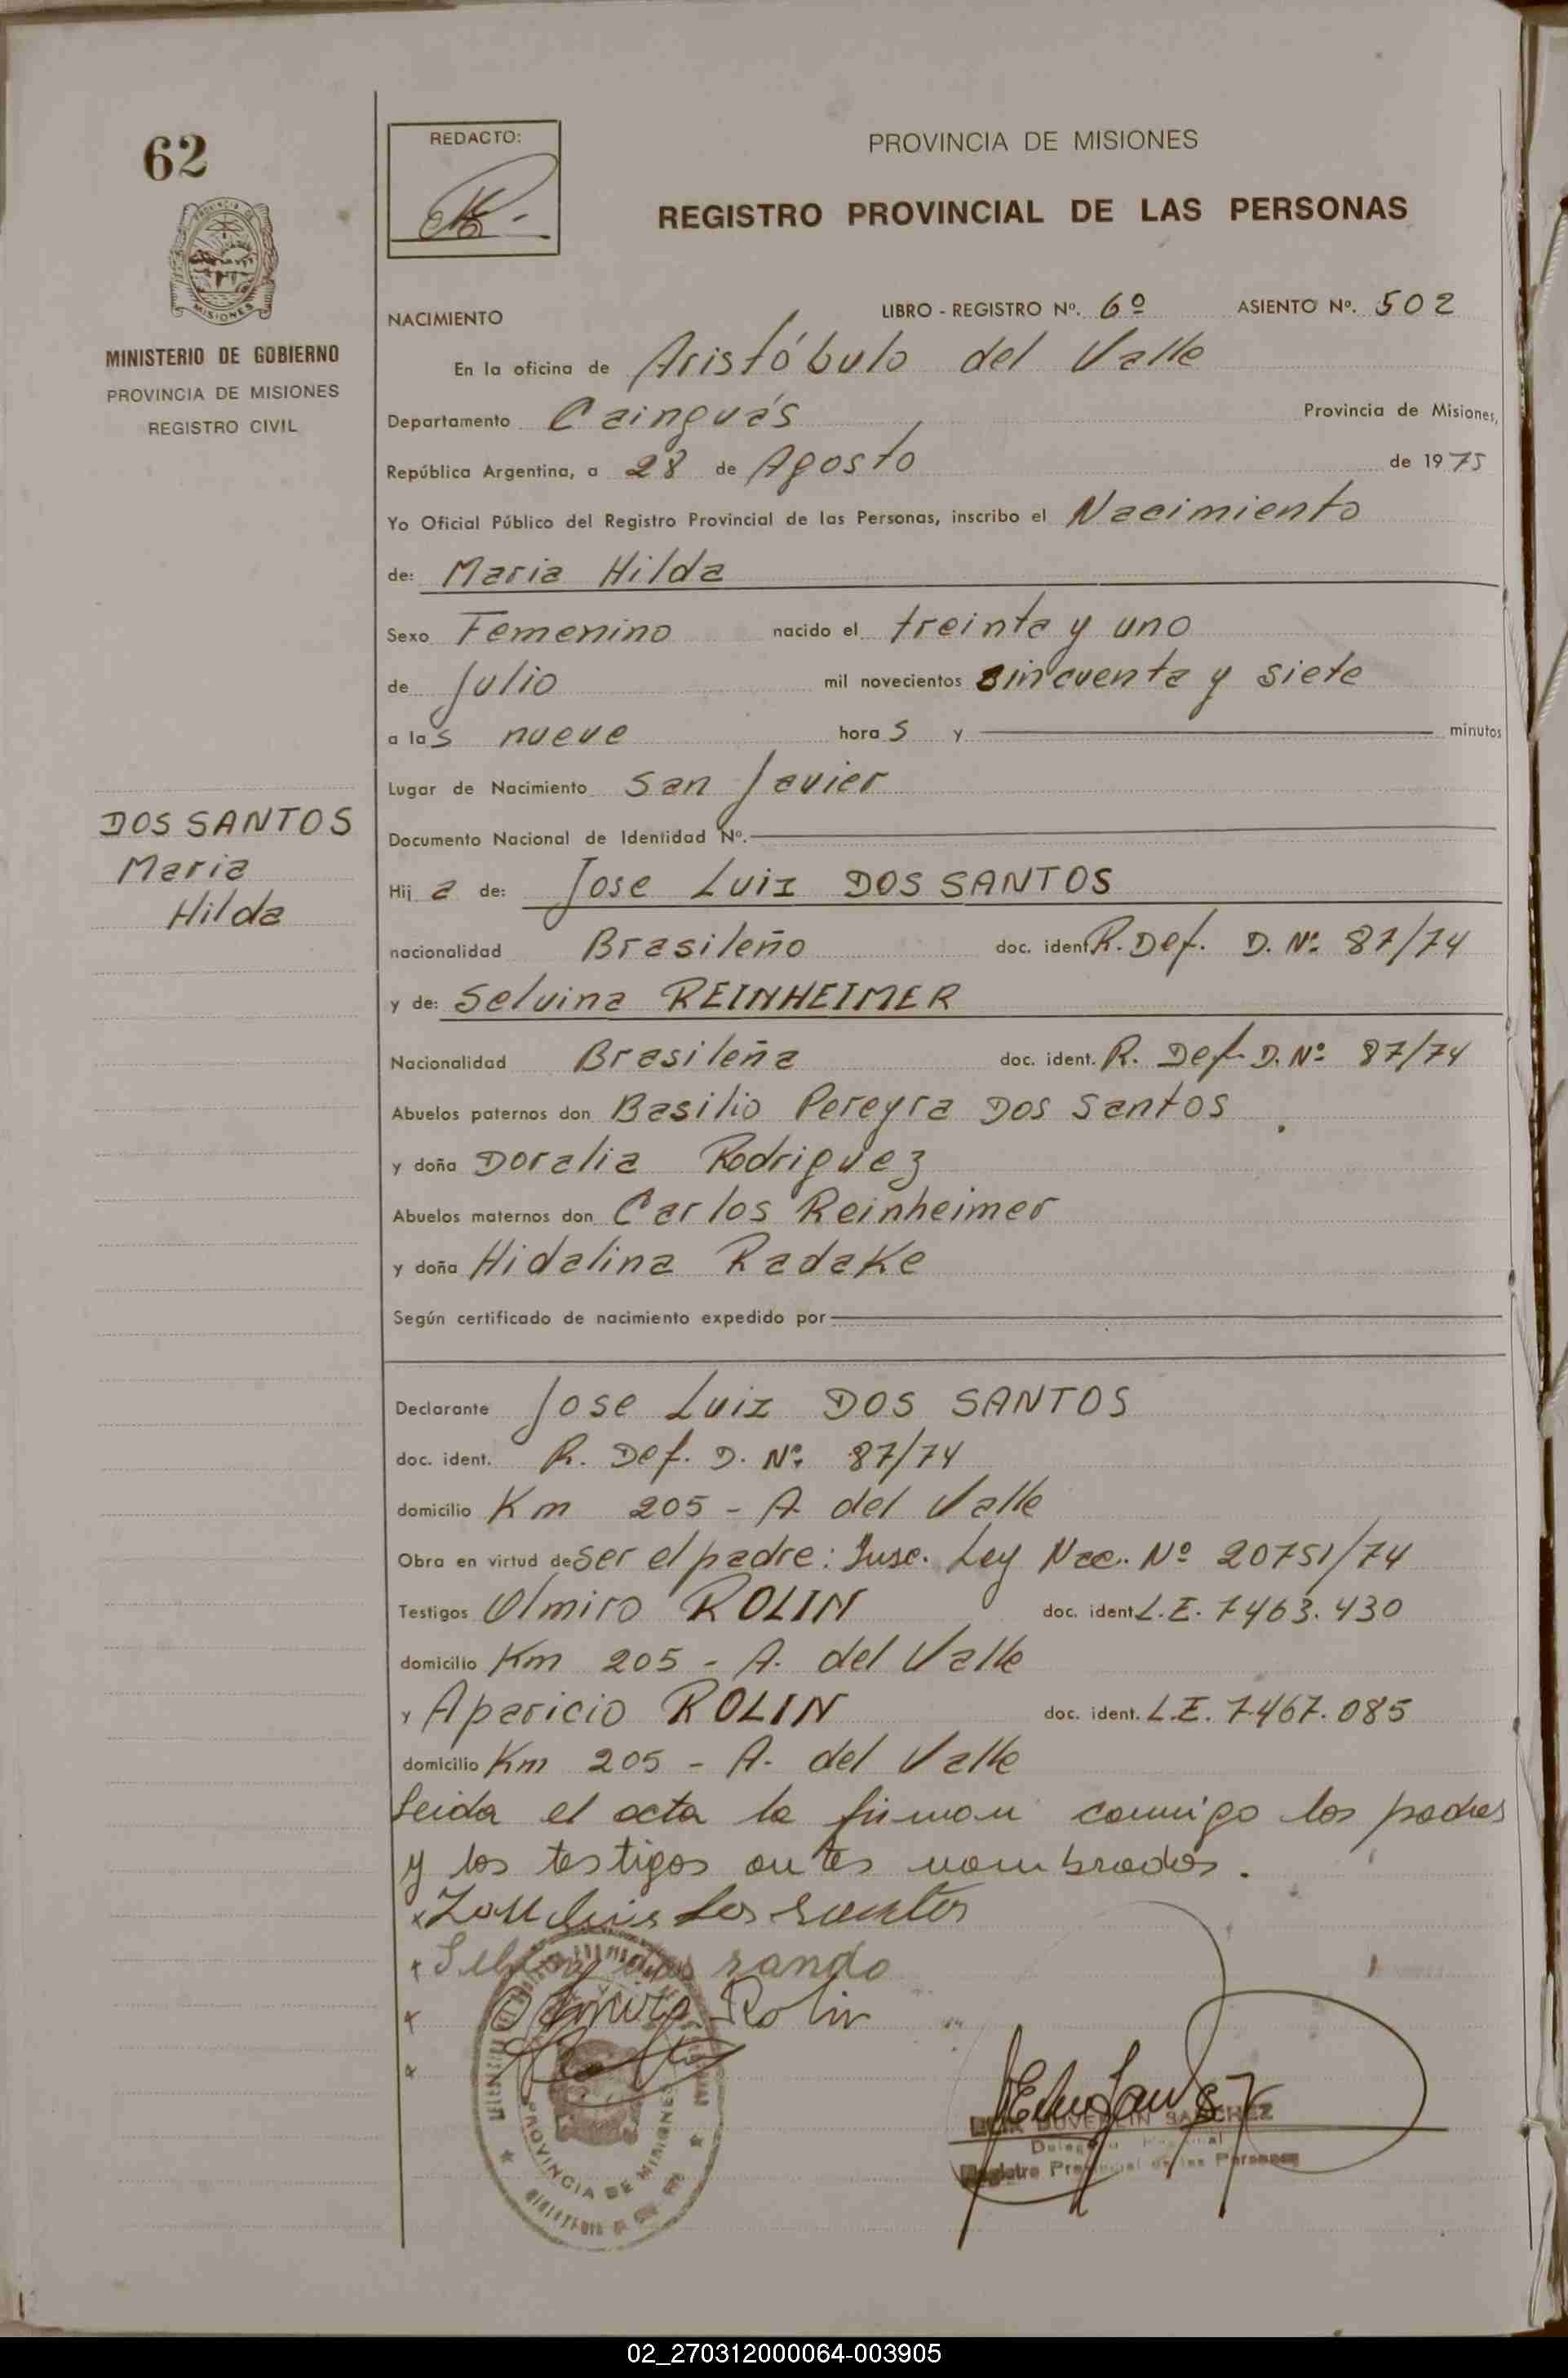 62
PROVINCIA DE
MISIONES
MINISTERIO DE GOBIERNO
PROVINCIA DE MISIONES
REGISTRO CIVIL
REDACTO:
PROVINCIA DE MISIONES
REGISTRO PROVINCIAL DE LAS PERSONAS
NACIMIENTO LIBRO - REGISTRO Nº. 6º ASIENTO Nº. 502
En la oficina de Aristóbulo del Valle
Departamento Cainguás Provincia de Misiones,
República Argentina, a 28 de Agosto de 1975
Yo Oficial Público del Registro Provincial de las Personas, inscribo el Nacimiento
de: Maria Hilda
Sexo Femenino nacido el treinta y uno
de Julio mil novecientos cincuenta y siete
a las nueve horas y minutos
Lugar de Nacimiento San Javier
Documento Nacional de Identidad Nº.
DOS SANTOS
Maria
Hilda
Hija de: Jose Luiz DOS SANTOS
nacionalidad Brasileño doc. ident. R. Def. D. Nº 87/74
y de: Selvina REINHEIMER
Nacionalidad Brasileña doc. ident. R. Def. D. Nº 87/74
Abuelos paternos don Basilio Pereyra Dos Santos
y doña Doralia Rodriguez
Abuelos maternos don Carlos Reinheimer
y doña Hidalina Radake
Según certificado de nacimiento expedido por
Declarante Jose Luiz DOS SANTOS
doc. ident. R. Def. D. Nº 87/74
domicilio Km 205 - A. del Valle
Obra en virtud de ser el padre: Insc. Ley Nac. Nº 20751/74
Testigos Olmiro ROLIN doc. ident. L.E. 7463.430
domicilio Km 205 - A. del Valle
y Aparicio ROLIN doc. ident. L.E. 7.467.085
domicilio Km 205 - A. del Valle
Leida el acta la firman conmigo los padres
y los testigos antes nombrados.
x dos santos
x
x Olmiro Rolin
x
PROVINCIA DE MISIONES
SANCHEZ
Registro Provincial de las Personas
02_270312000064-003905